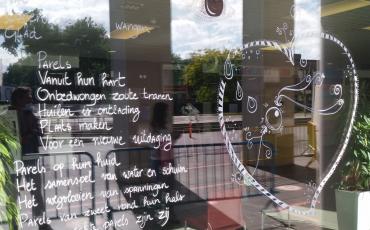 Glad
wangen
Parels
Vanuit hun hart
Onbedwongen zoute tranen
Huilen is ontlading
Plaats maken
Voor een nieuwe uitdaging
Parels op hun huid
Het samenspel van water en schuim
Het wegvloeien van spanningen
Parels van zweet rond hun hals
parels zijn zij